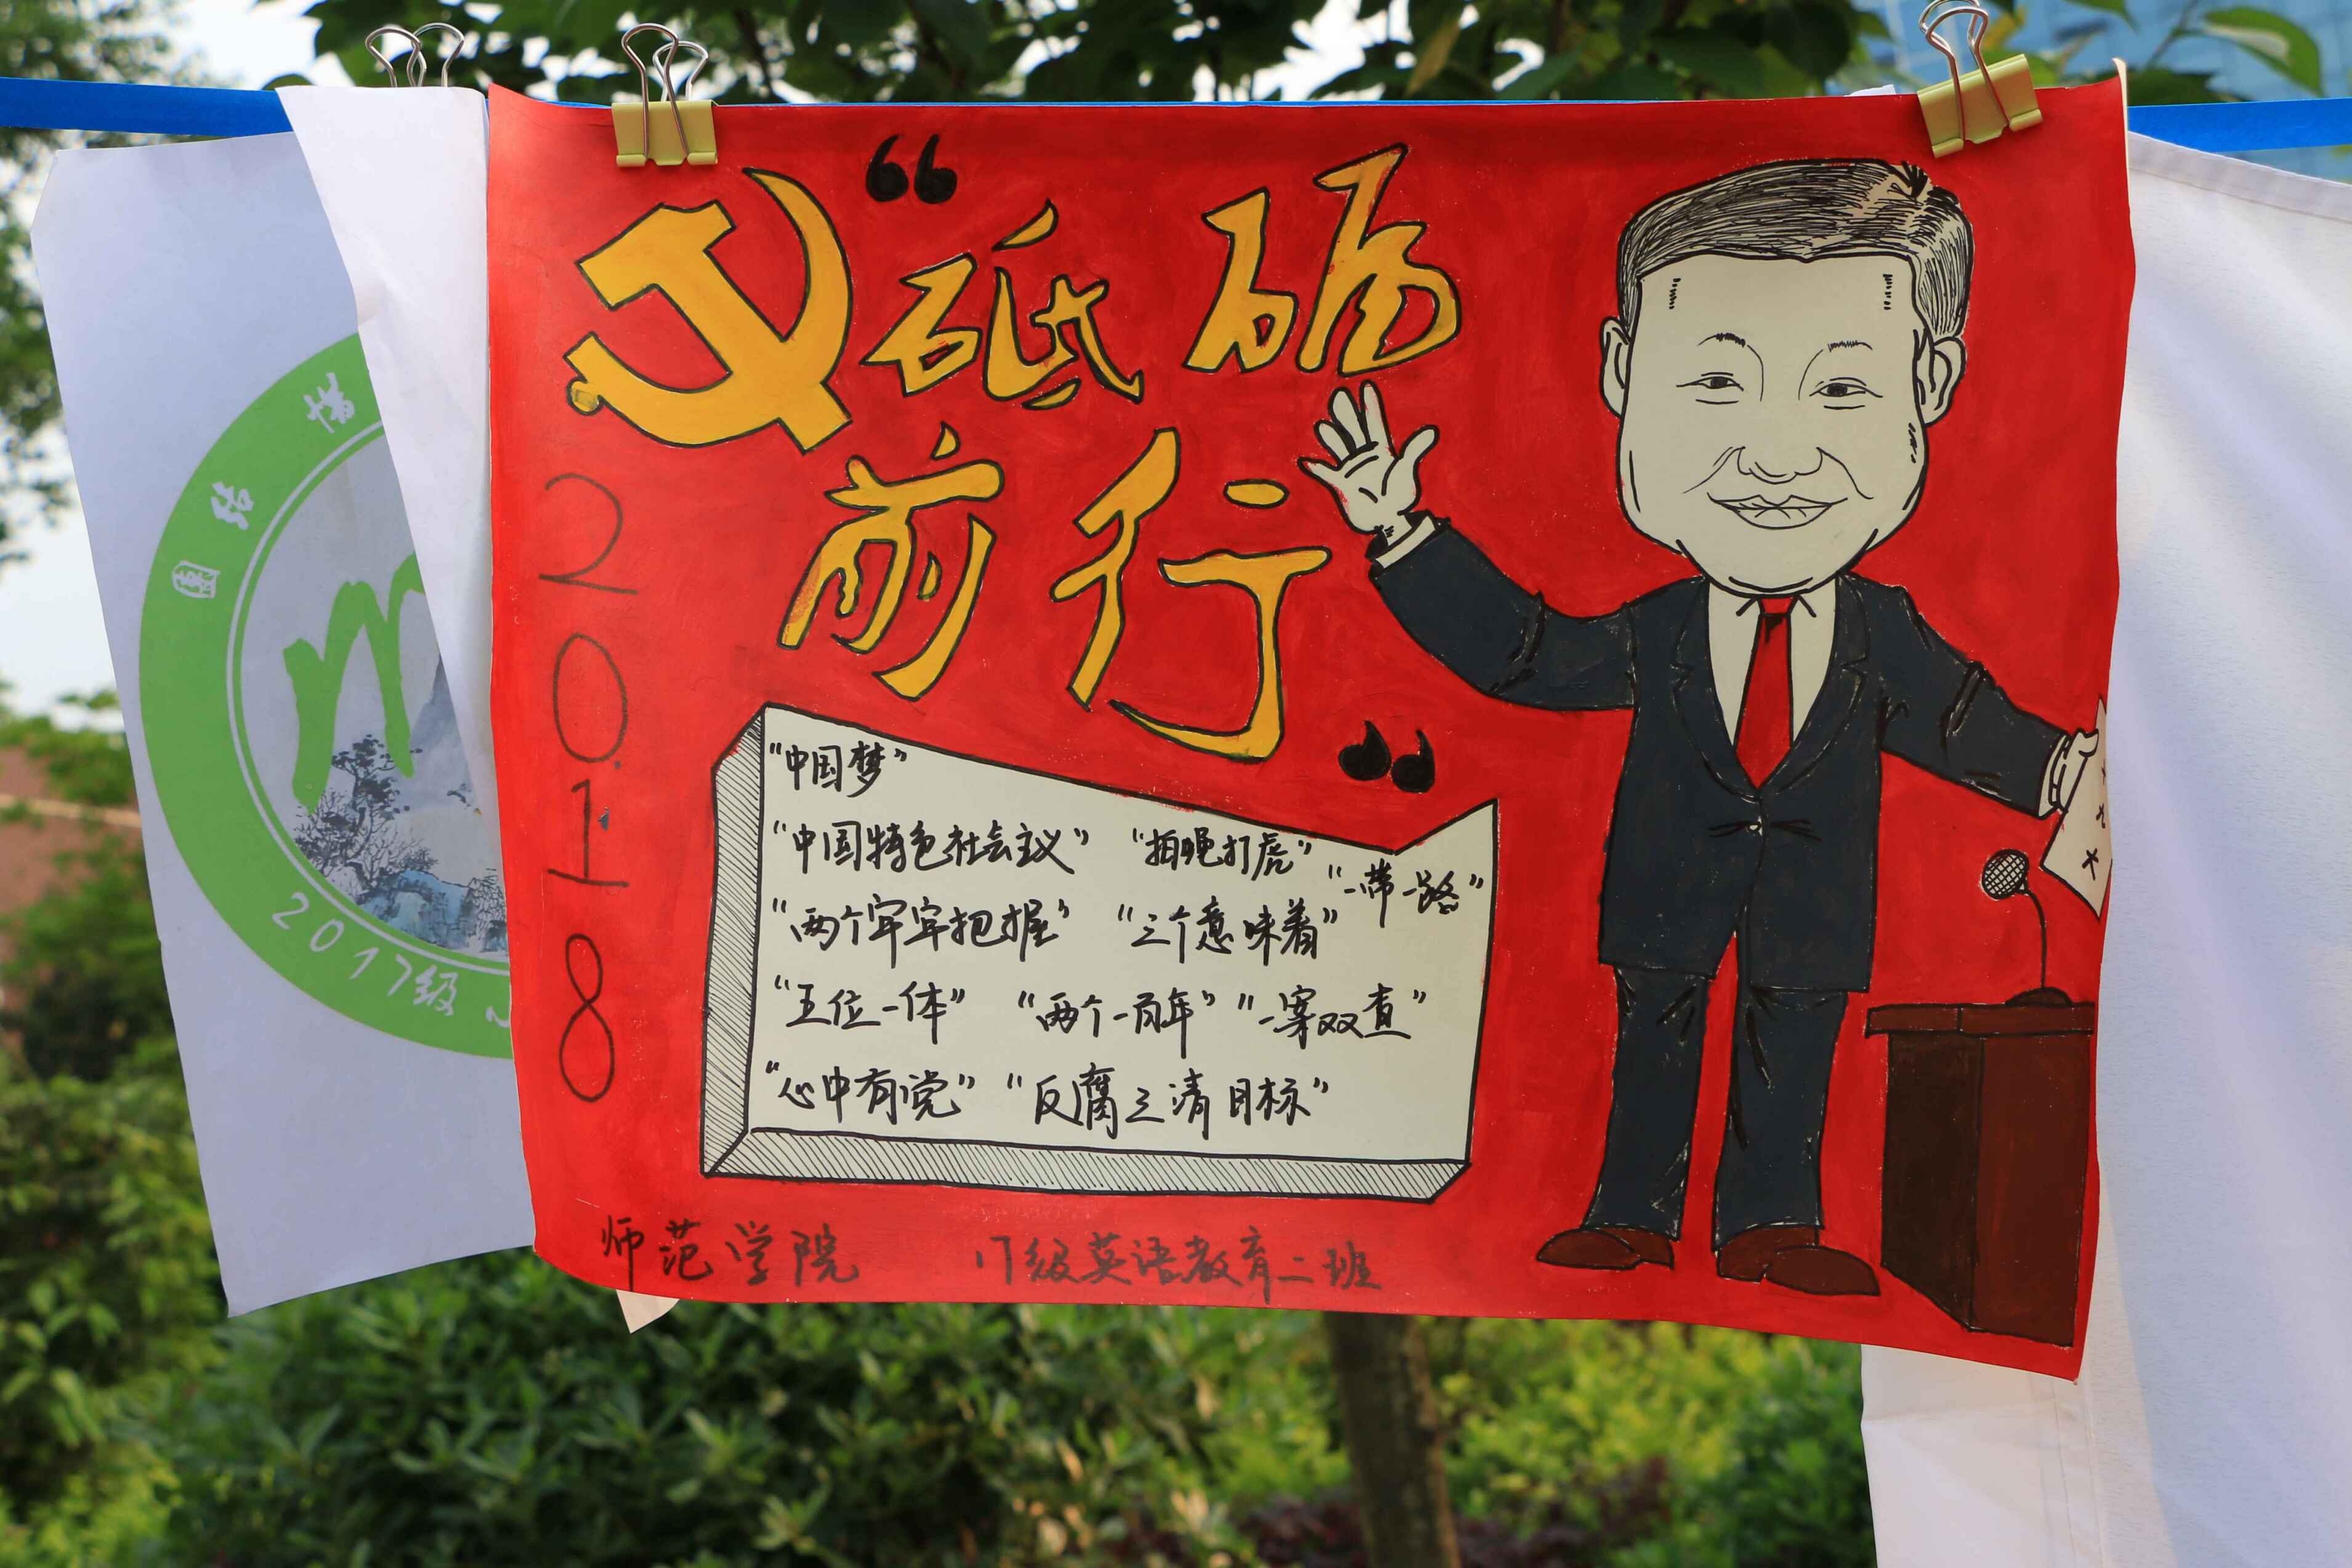 “砥砺
前行”
2018
“中国梦”
“中国特色社会主议” “拍蝇打虎” “一带一路”
“两个牢牢把握” “三个意味着”
“五位一体” “两个一百年” “一案双查”
“心中有党” “反腐三清目标”
师范学院 17级英语教育二班
团结
惜
2017级